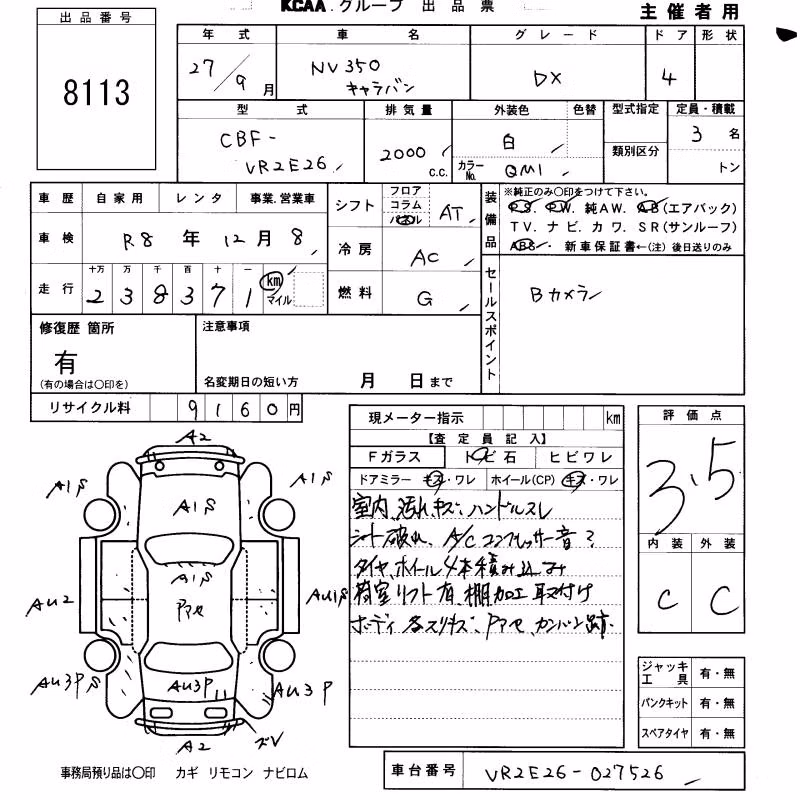 KCAA.グループ 出品票
主催者用
出品番号
8113
年式 車名 グレード ドア 形状
27/9月 NV350 キャラバン DX 4
型式 排気量 外装色 色替 型式指定 定員・積載
CBF-VR2E26 2000 c.c. 白 3名
カラーNo. QM1 類別区分 トン
車歴 自家用 レンタ 事業.営業車
シフト フロア コラム パネル AT
装備品 ※純正のみ○印をつけて下さい。
P.S. P.W. 純AW. AB(エアバック)
TV. ナビ. カワ. SR(サンルーフ)
ABS. 新車保証書←(注)後日送りのみ
車検 R8年12月8
冷房 AC
走行 十万 万 千 百 十 一
238371 km マイル
燃料 G
セールスポイント Bカメラ
修復歴 箇所
有
(有の場合は○印を)
注意事項
名変期日の短い方 月 日まで
リサイクル料 9160円
現メーター指示 km
【査定員記入】
Fガラス トビ石 ヒビワレ
ドアミラー キズ・ワレ ホイール(CP) キズ・ワレ
室内、汚れ、キズ、ハンドルスレ
シート破れ、A/Cコンプレッサー音?
タイヤ、ホイール4本積み込み
荷室リフト有、棚加工取付け
ボディ各スリキズ、アマセ、カンバン跡
評価点
3.5
内装 外装
C C
ジャッキ工具 有・無
パンクキット 有・無
スペアタイヤ 有・無
A2
A1S
A1S
A1S
A1S
AU2
アマセ
AU1S
AU3PS
AU3P
AU3P
A2
ズV
事務局預り品は○印 カギ リモコン ナビロム
車台番号 VR2E26-027526